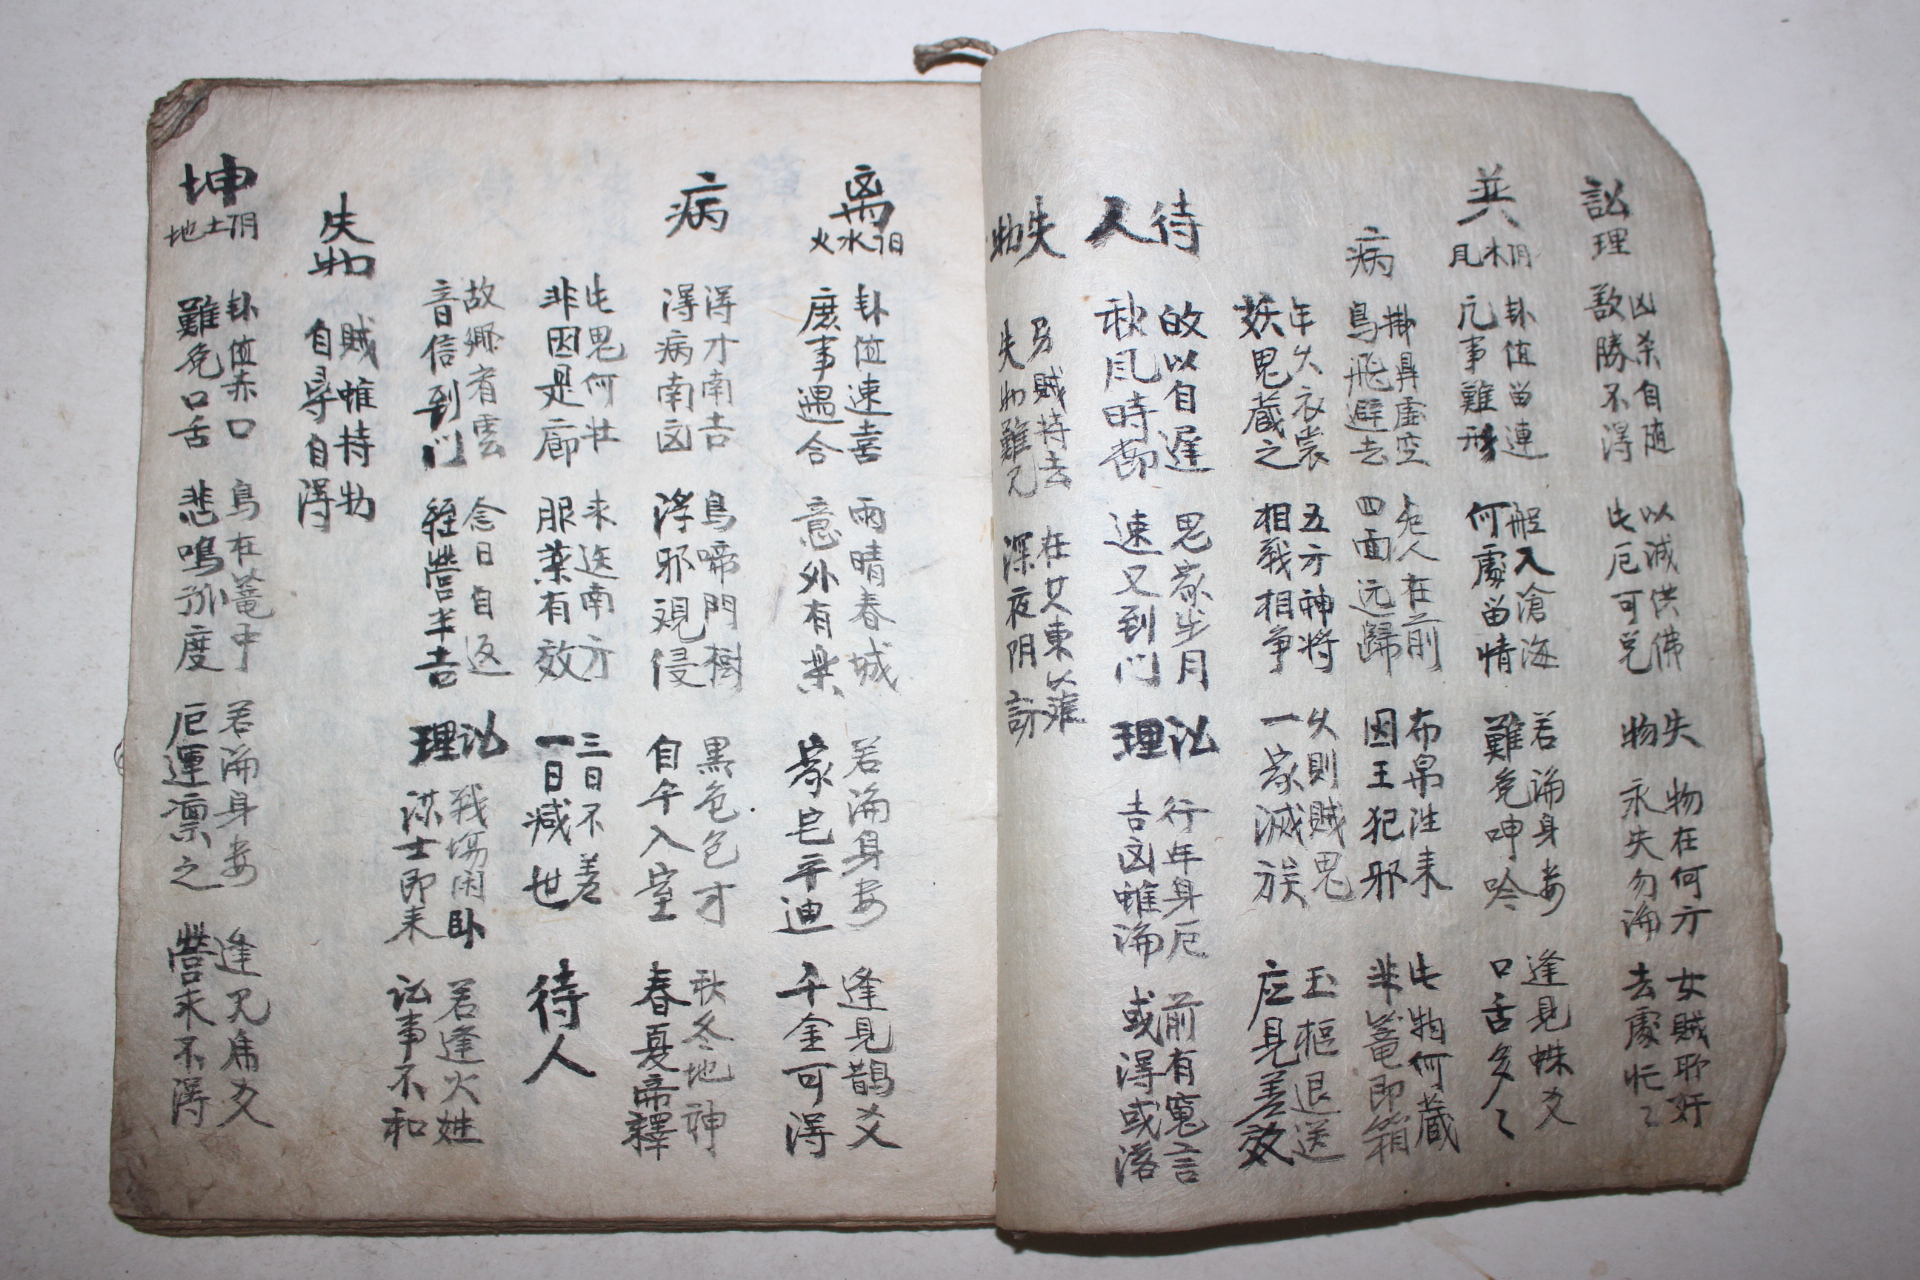 訟理
凶杀自随
敌勝不淂
以减供佛
此厄可免
失物
物在何方
永失勿論
女賊耶奸
去處忙〻
巽
風木阴
卦值留連
凡事難形
舡入滄海
何處留情
若論身妾
難免呻吟
逢見蛛爻
口舌多〻
病
掛鼎虛空
鳥飛避去
危人在前
四面远歸
布帛往来
因王犯邪
此物何藏
非篭即箱
年久衣裳
妖鬼藏之
五方神將
相戰相争
久則賊鬼
一家滅族
玉樞退送
应見差效
待人
的以自遲
秋風時節
思家步月
速又到门
訟理
行年身厄
吉凶惟論
前有寃言
或淂或落
失物
男賊持去
失物難見
在女東以难
深夜阴訪
离
火水阳
卦值速喜
庶事遇合
雨晴春城
意外有樂
若論身妾
家宅平迪
逢見鵲爻
千金可淂
病
淂才南吉
淂病南凶
鳥啼門樹
浮邪覡侵
黑色色才
自午入室
秋冬地神
春夏帝釋
此鬼何壮
非因是廊
来送南方
服藥有效
三日不差
一日减世
待人
故鄉看雲
音信到门
念日自返
經營半吉
訟理
戰塲闲卧
謀士即来
若逢火姓
訟事不和
失物
賊惟持物
自尋自淂
坤
地土阴
卦值赤口
難免口舌
鳥在篭中
悲鳴孤度
若論身妾
厄運凛之
逢見為爻
營求不淂